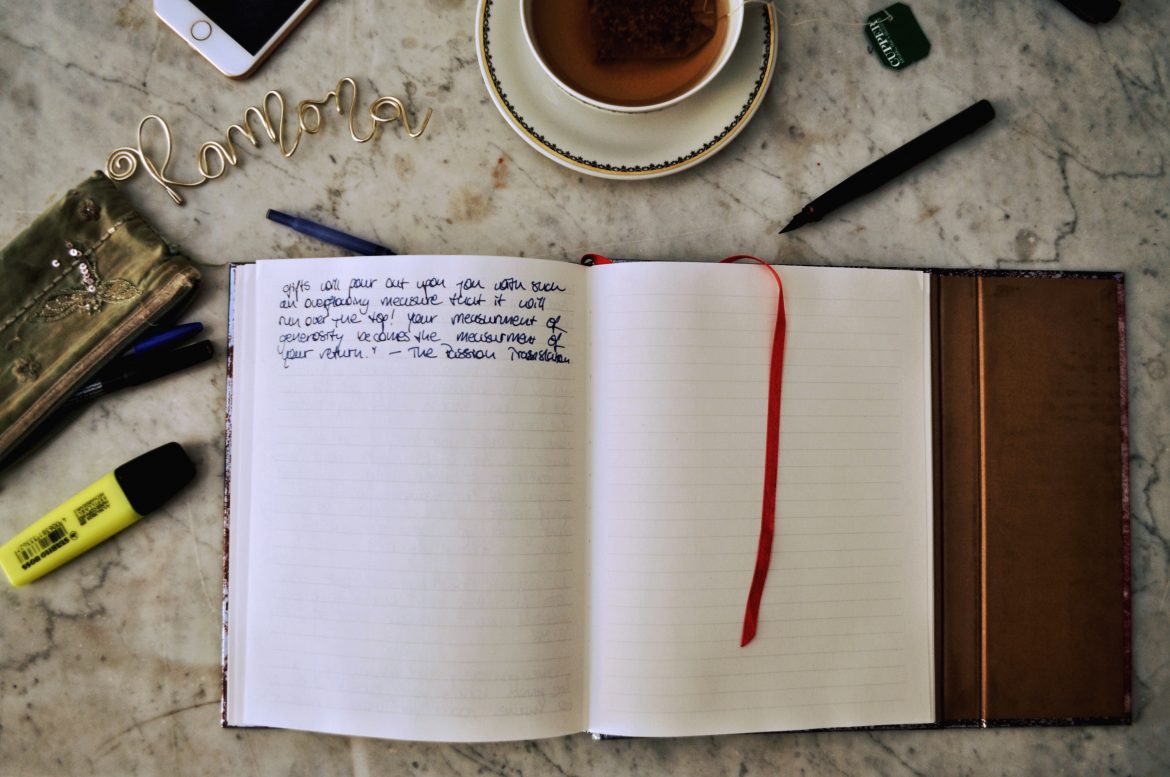 CLIPPER
Ramona
gifts will pour out upon you with such
an overflowing measure that it will
run over the top! your measurment of
generosity becomes the measurment of
your return." — The Passion Translation
STABILO BOSS